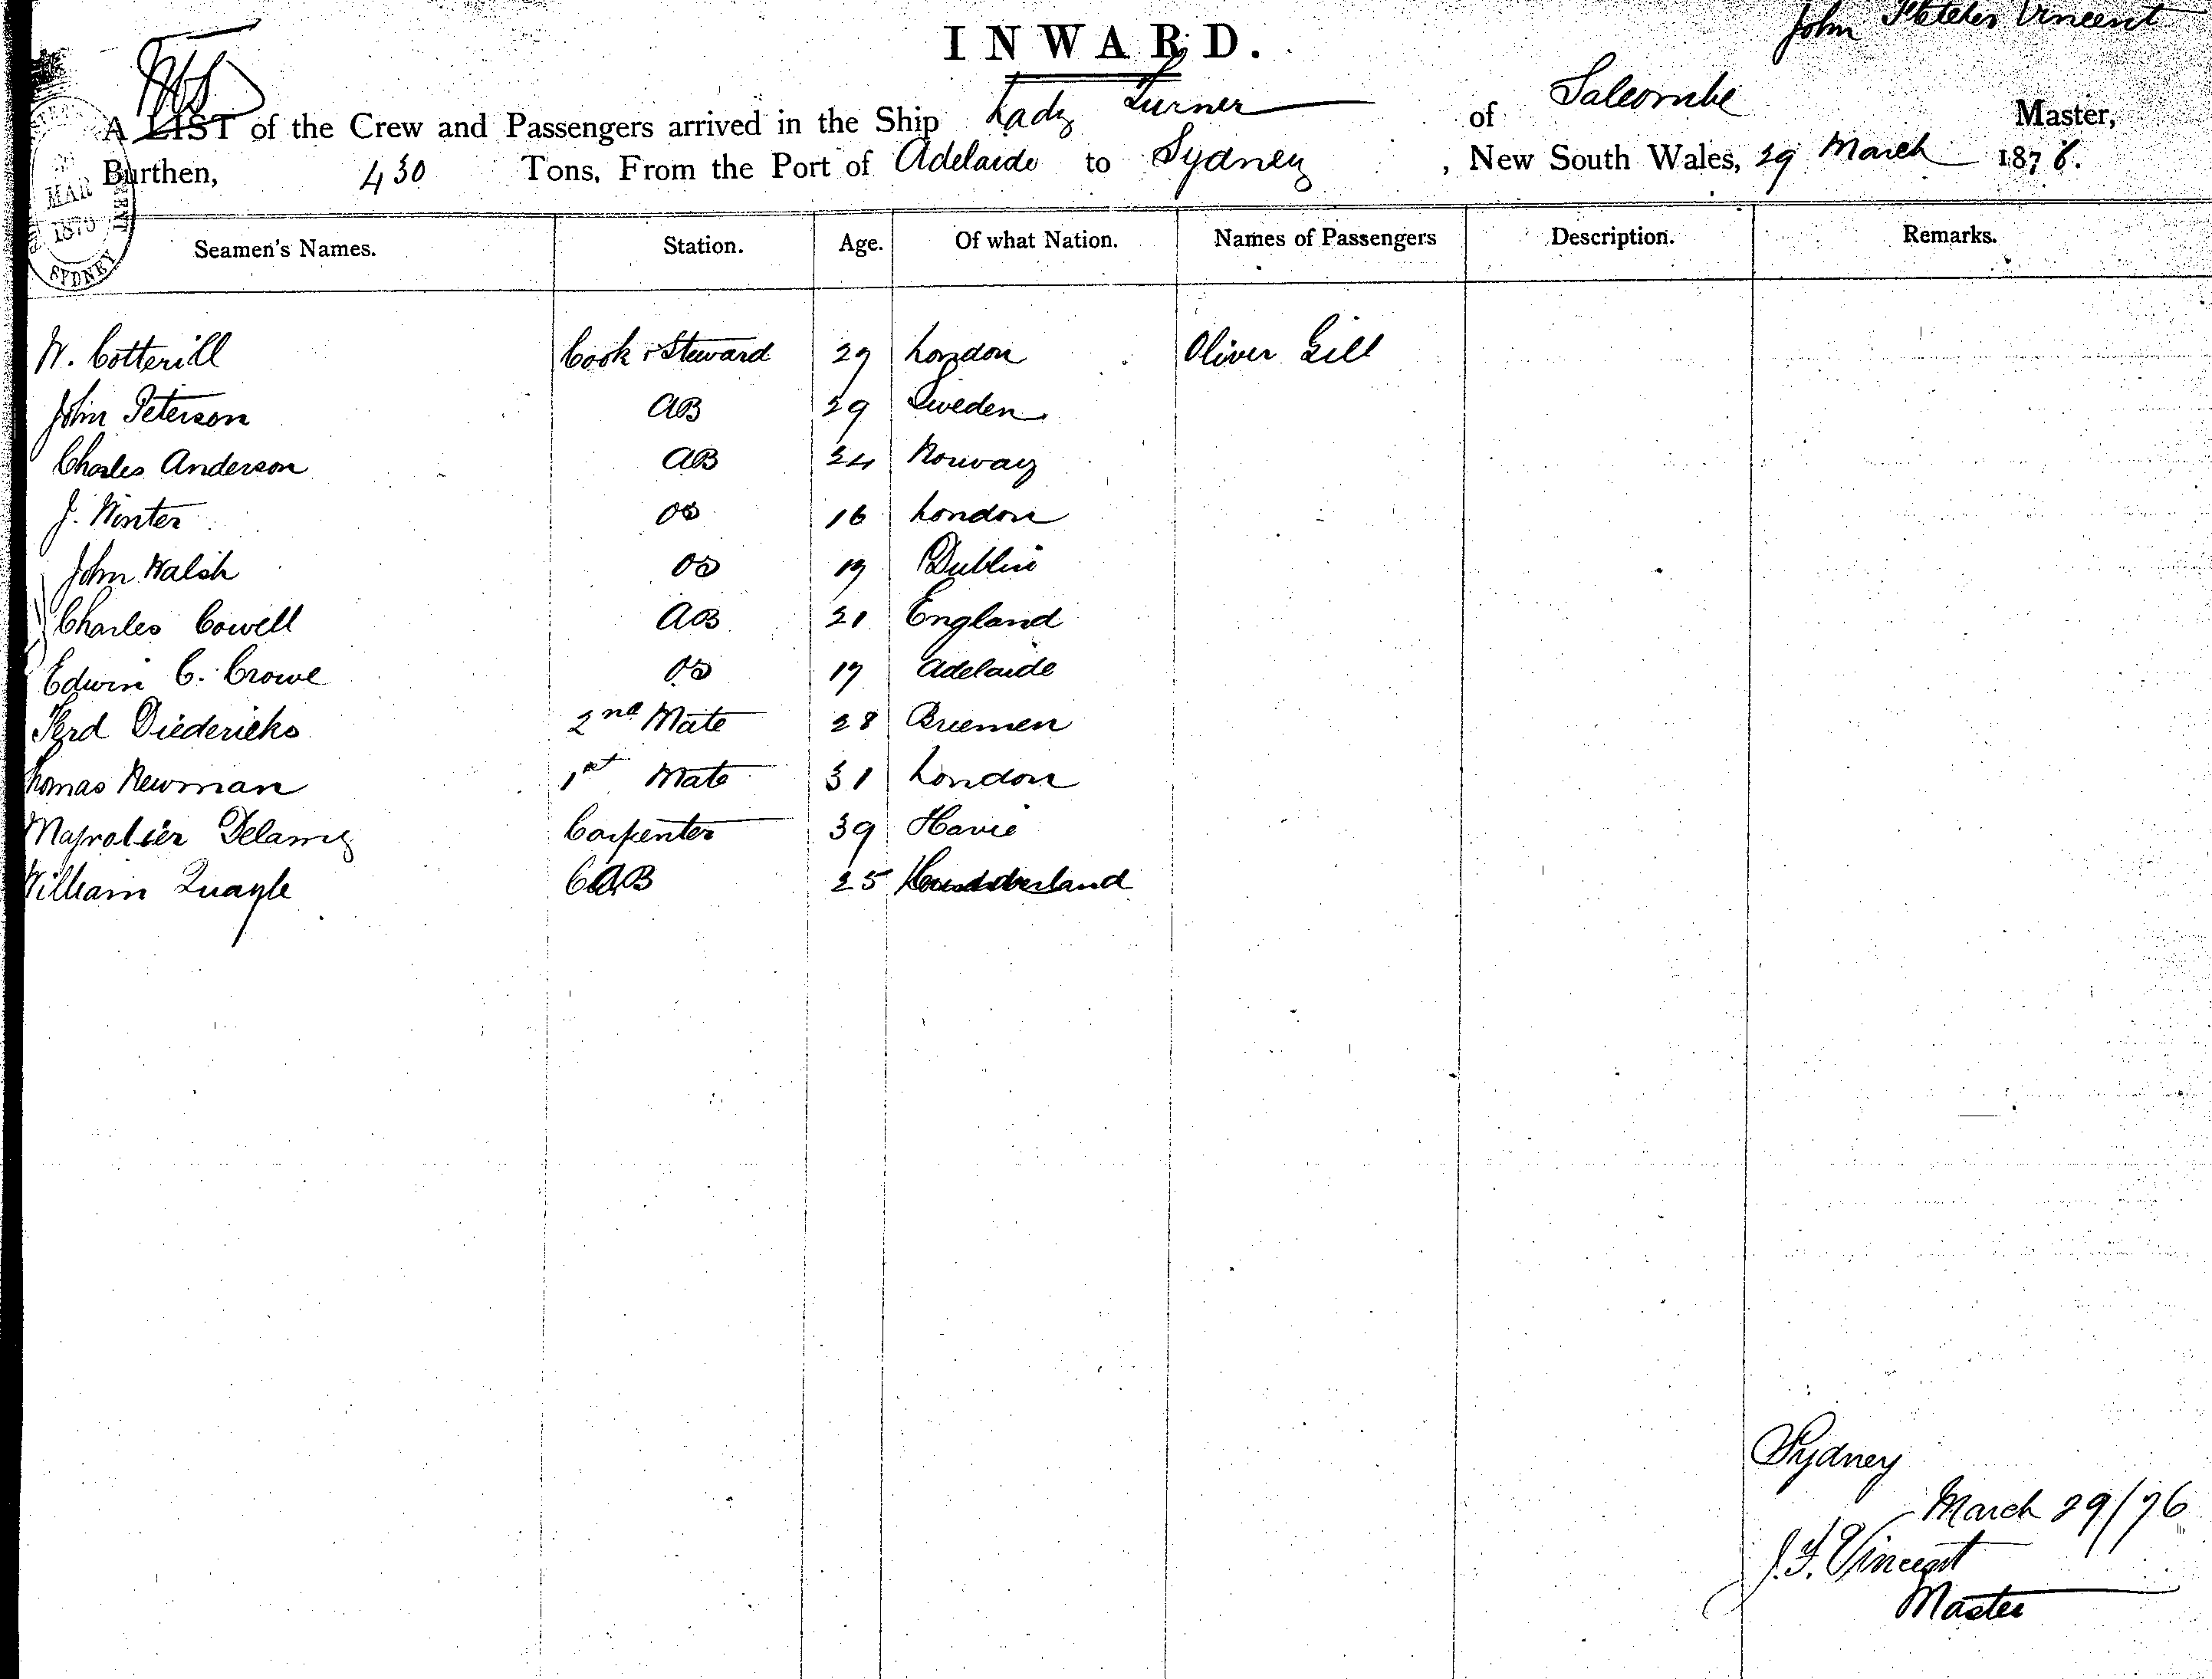 John Fletcher Vincent
INWARD.
A LIST of the Crew and Passengers arrived in the Ship Lady Turner of Salcombe Master,
Burthen, 430 Tons, From the Port of Adelaide to Sydney, New South Wales, 29 March 1876.
MAR
1876
SYDNEY
Seamen's Names. Station. Age. Of what Nation. Names of Passengers Description. Remarks.
W. Cotterill Cook & Steward 29 London Oliver Gill
John Peterson AB 29 Sweden
Charles Anderson AB 24 Norway
J. Winter OS 16 London
John Walsh OS 19 Dublin
Charles Cowell AB 21 England
Edwin C. Crowe OS 17 Adelaide
Ferd Diedericks 2nd Mate 28 Bremen
Thomas Newman 1st Mate 31 London
Carpenter 39 Havre
William Quayle AB 25
Sydney
March 29/76
J.F. Vincent
Master